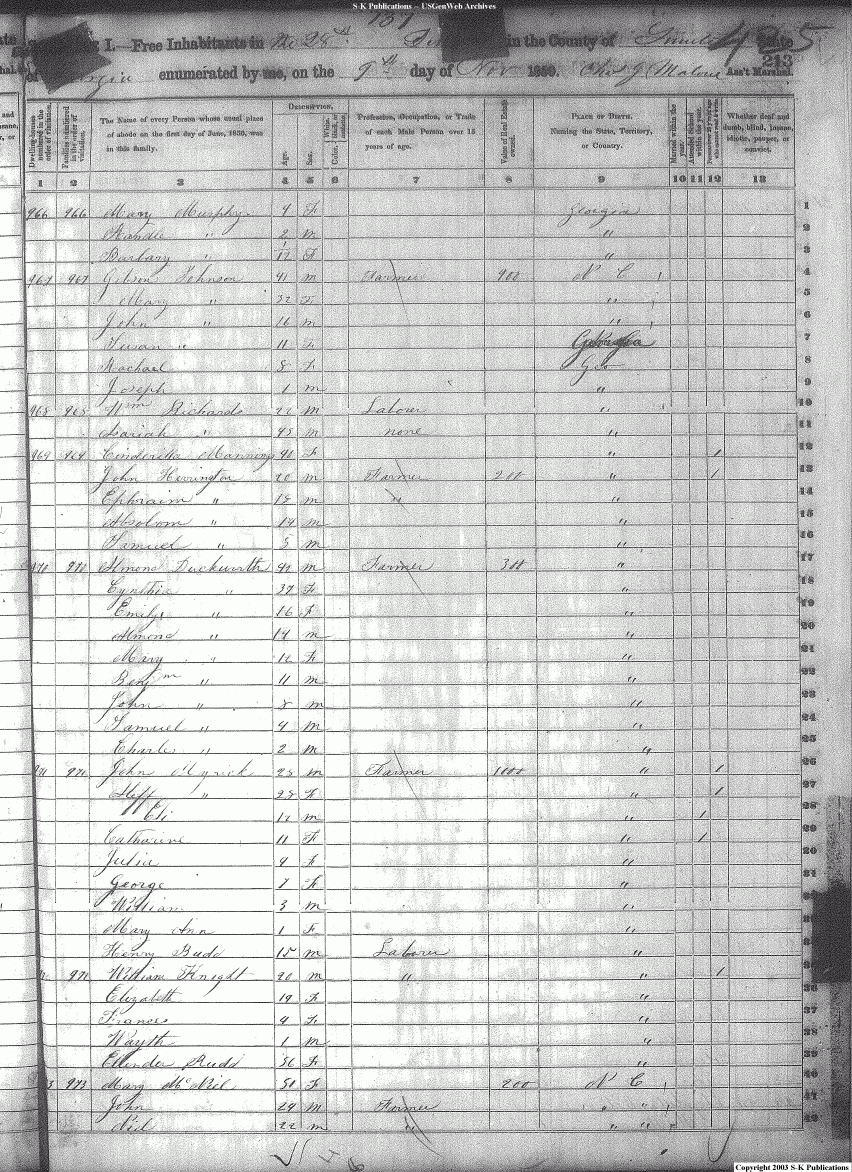 S-K Publications – USGenWeb Archives
187
I.—Free Inhabitants in the 28th in the County of State 425
213
of enumerated by me, on the 9th day of Nov 1850. Chas G Malone Ass't Marshal.
Dwelling-houses numbered in the order of visitation. Families numbered in the order of visitation. The Name of every Person whose usual place of abode on the first day of June, 1850, was in this family. Description. Age. Sex. Color, White, black, or mulatto. Profession, Occupation, or Trade of each Male Person over 15 years of age. Value of Real Estate owned. Place of Birth. Naming the State, Territory, or Country. Married within the year. Attended School within the year. Persons over 20 y'rs of age who cannot read & write. Whether deaf and dumb, blind, insane, idiotic, pauper, or convict.
1 2 3 4 5 6 7 8 9 10 11 12 13
966 966 Mary Murphy 4 F Georgia 1
" 2 m " 2
Barbary " 1/12 F " 3
967 967 Gibson Johnson 41 m Farmer 900 N C 4
Mary " 32 F " 5
John " 16 m " 6
Susan " 11 F Georgia 7
Rachael 8 F Geo 8
Joseph 1 m " 9
968 968 Wm Richards 22 m Laborer " 10
" 45 m none " 11
969 969 Manning F " 1 12
John Herrington 20 m Farmer 200 " 1 13
Ephraim " 18 m " " 14
Absolom " 14 m " 15
Samuel " 5 m " 16
970 970 Almond Duckworth m Farmer 300 " 17
Cynthia " 37 F " 18
Emily " 16 F " 19
Almond " 14 m " 20
Mary " 12 F " 21
Benjm " 11 m " 22
John " 8 m " 23
Samuel " 4 m " 24
Charles " 2 m " 25
971 971 John Myrick m Farmer 1000 " 1 26
" 28 F " 1 27
Eli 12 m " 1 28
Catharine 11 F " 1 29
Julia 9 F " 30
George 7 F " 31
William 3 m "
Mary Ann 1 F "
Henry Budd 15 m Laborer "
William Knight 20 m " " 1
Elizabeth 19 F " 36
Frances 9 F " 37
Wayth 1 m " 38
Budd 56 F " 39
973 Mary McNeil 50 F 200 N C 40
John 24 m Farmer " " 41
22 m " " " 42
Copyright 2003 S-K Publications